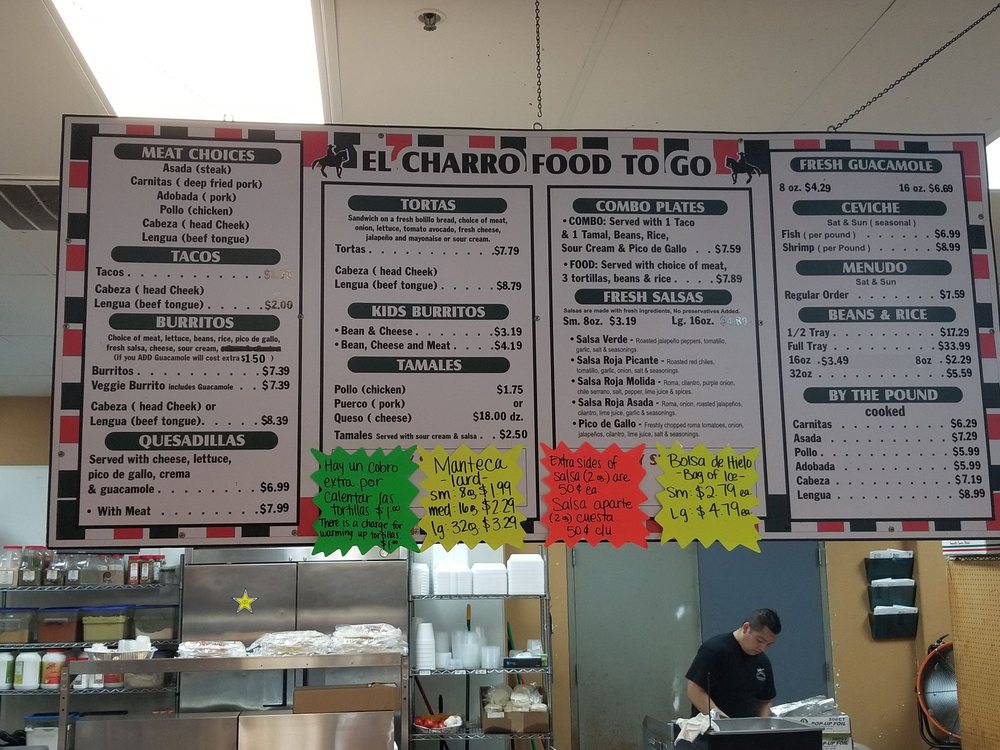 EL CHARRO FOOD TO GO
MEAT CHOICES
Asada (steak)
Carnitas ( deep fried pork)
Adobada ( pork)
Pollo (chicken)
Cabeza ( head Cheek)
Lengua (beef tongue)
TACOS
Tacos
Cabeza ( head Cheek)
Lengua (beef tongue) $2.00
BURRITOS
Choice of meat, lettuce, beans, rice, pico de gallo,
fresh salsa, cheese, sour cream,
(if you ADD Guacamole will cost extra $1.50 )
Burritos $7.39
Veggie Burrito includes Guacamole $7.39
Cabeza ( head Cheek) or
Lengua (beef tongue) $8.39
QUESADILLAS
Served with cheese, lettuce,
pico de gallo, crema
& guacamole $6.99
• With Meat $7.99
TORTAS
Sandwich on a fresh bolillo bread, choice of meat,
onion, lettuce, tomato avocado, fresh cheese,
jalapeño and mayonaise or sour cream.
Tortas $7.79
Cabeza ( head Cheek)
Lengua (beef tongue) $8.79
KIDS BURRITOS
• Bean & Cheese $3.19
• Bean, Cheese and Meat $4.19
TAMALES
Pollo (chicken) $1.75
Puerco ( pork) or
Queso ( cheese) $18.00 dz.
Tamales Served with sour cream & salsa $2.50
COMBO PLATES
• COMBO: Served with 1 Taco
& 1 Tamal, Beans, Rice,
Sour Cream & Pico de Gallo $7.59
• FOOD: Served with choice of meat,
3 tortillas, beans & rice $7.89
FRESH SALSAS
Salsas are made with fresh ingredients, No preservatives Added.
Sm. 8oz. $3.19 Lg. 16oz.
• Salsa Verde - Roasted jalapeño peppers, tomatillo,
garlic, salt & seasonings.
• Salsa Roja Picante - Roasted red chiles,
tomatillo, garlic, onion, salt & seasonings.
• Salsa Roja Molida - Roma, cilantro, purple onion,
chile serrano, salt, pepper, lime juice & spices.
• Salsa Roja Asada - Roma, onion, roasted jalapeños,
cilantro, lime juice, garlic & seasonings.
• Pico de Gallo - Freshly chopped roma tomatoes, onion,
jalapeños, cilantro, lime juice, salt & seasonings.
FRESH GUACAMOLE
8 oz. $4.29 16 oz. $6.69
CEVICHE
Sat & Sun ( seasonal )
Fish ( per pound ) $6.99
Shrimp ( per Pound ) $8.99
MENUDO
Sat & Sun
Regular Order $7.59
BEANS & RICE
1/2 Tray $17.29
Full Tray $33.99
16oz $3.49 8oz $2.29
32oz $5.59
BY THE POUND
cooked
Carnitas $6.29
Asada $7.29
Pollo $5.99
Adobada $5.99
Cabeza $7.19
Lengua $8.99
Hay un cobro
extra por
calentar las
tortillas $1.00
There is a charge for
warming up tortillas
$1.00
Manteca
-lard-
sm: 8oz $1.99
med: 16oz $2.29
lg: 32oz $3.29
Extra sides of
salsa (2 oz) are
50¢ ea
Salsa aparte
(2 oz) cuesta
50¢ c/u.
Bolsa de Hielo
-Bag of Ice-
Sm: $2.79 ea
Lg: $4.79 ea.
POP-UP FOIL